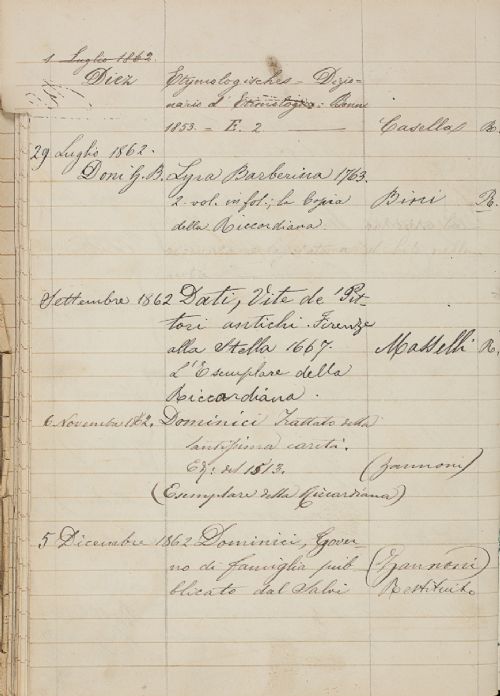 1 Luglio 1862.
Diez Etymologisches - Dizio-
nario d'Etimologia: Bonne
1853. - E. 2 — Casella R.
29 Luglio 1862.
Doni G. B. Lyra Barberina 1763.
2 vol. in fol.; la Copia Bini R.
della Riccardiana.
Settembre 1862 Dati, Vite de' Pit-
tori antichi. Firenze
alla Stella 1667. Masselli R.
L'Esemplare della
Riccardiana.
6 Novembre 1862. Dominici Trattato della
santissima carità.
Ez: del 1513. (Zannoni)
(Esemplare della Riccardiana)
5 Dicembre 1862 Dominici, Gover-
no di famiglia pub- (Zannoni)
blicato dal Salvi Restituito